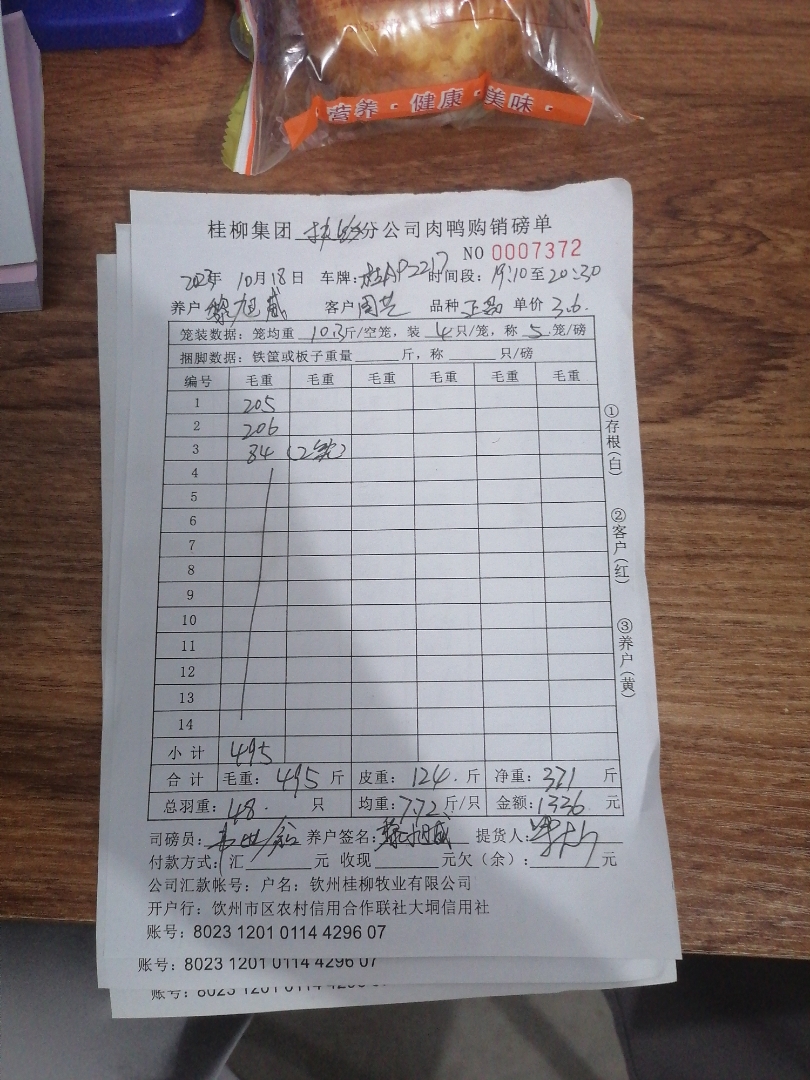 营养·健康·美味·
桂柳集团 分公司肉鸭购销磅单
NO 0007372
2023年 10月18日 车牌:桂AP2217 时间段:19:10至20:30
养户 黎旭威 客户 周芝 品种 正品 单价 3.6.
笼装数据:笼均重 10.3斤/空笼,装 4只/笼,称 5.笼/磅
捆脚数据:铁筐或板子重量______斤,称______只/磅
编号 毛重 毛重 毛重 毛重 毛重 毛重
1 205
2 206
3 84 (2笼)
4
5
6
7
8
9
10
11
12
13
14
小计 495
合计 毛重:495斤 皮重:124.斤 净重:371 斤
总羽重:48. 只 均重:7.72斤/只 金额:1336 元
司磅员: 养户签名:黎旭威 提货人:
付款方式:汇______元 收现______元欠(余):______元
公司汇款帐号:户名:钦州桂柳牧业有限公司
开户行:饮州市区农村信用合作联社大垌信用社
账号:8023 1201 0114 4296 07
账号:8023 1201 0114 4296 07
账号:8023 1201 0114
①存根(白)
②客户(红)
③养户(黄)